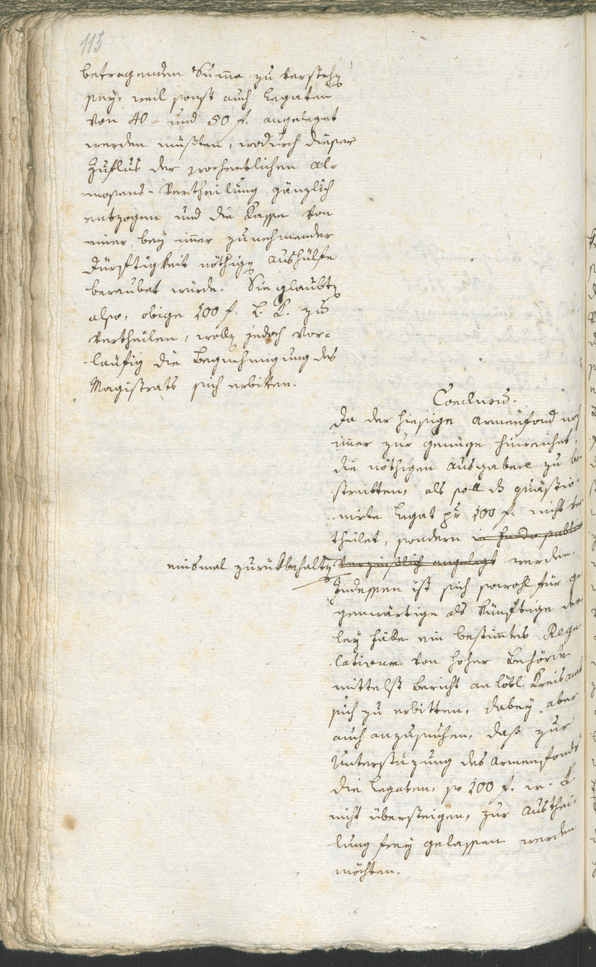 113
betragenden Summe zu verstehen
sey, weil sonst auch Legaten
von 40 und 50 f. angelegt
werden müßten, wodurch dieser
Zufluß der wochentlichen Al-
mosens-Vertheilung gänzlich
entzogen und die Kasse von
einer bey immer zunehmender
Dürftigkeit nöthigen Aushülfe
beraubet würde. Sie glaubten
also, obige 100 f. zu
vertheilen, wollen jedoch vor-
läufig die Begnehmigung des
Magistrats sich erbitten.
Conclusum.
Da der hiesige Armenfond noch
immer zur genüge hinreichet,
die nöthigen Ausgaben zu be-
streitten, als soll das quästio-
nirte Legat pr 100 f. nicht ver-
theilet, sondern in fundo publico
einsmal zurükbehalten verzinslich angelegt werden.
Indessen ist sich sowohl für ge-
genwärtige als künftige der-
ley fälle ein bestimmtes Regu-
lativum von hoher Behörde
mittelst Bericht an löbl. Kreisamt
sich zu erbitten, dabey aber
auch anzusuchen, daß zur
Unterstüzung des Armenfonds
die Legaten, so 100 f.
nicht übersteigen, zur Austhei-
lung frey gelassen werden
möchten.